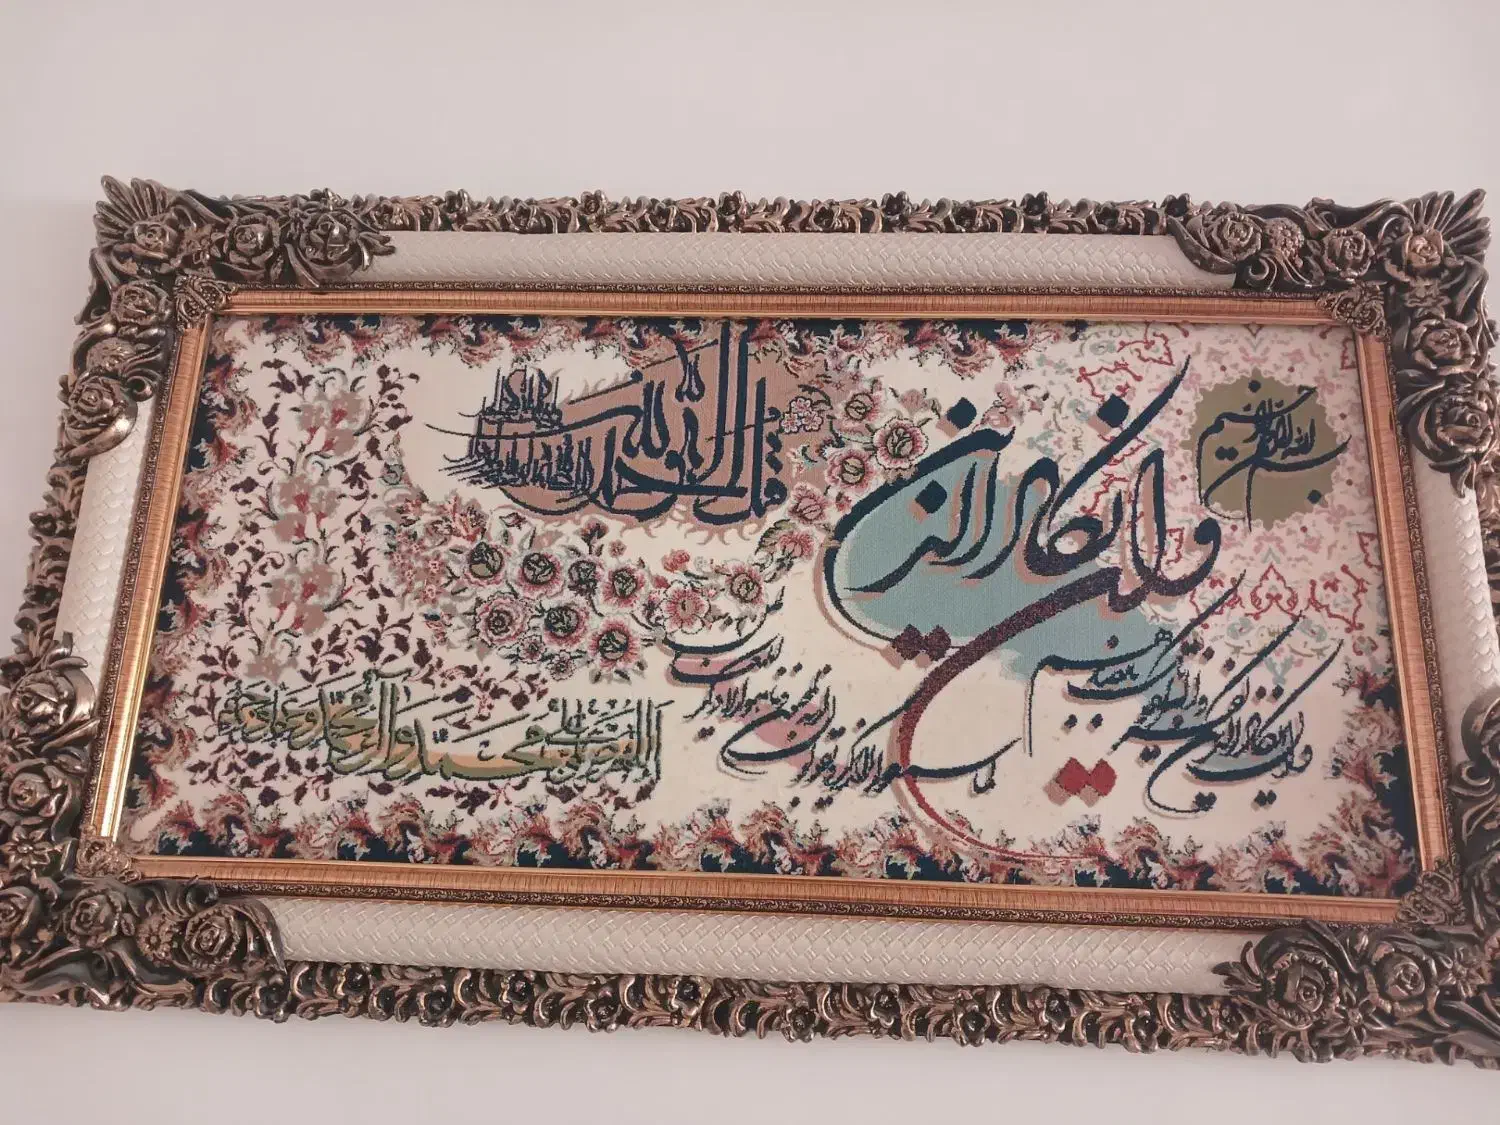 بسم الله الرحمن الرحیم
وان یکاد الذین
وان یکاد الذین کفروا لیزلقونک بابصارهم
لما سمعوا الذکر و یقولون انه لمجنون و ما هو الا ذکر للعالمین
قل هو الله احد الله
اللهم صل علی محمد وآل محمد وعجل فرجهم